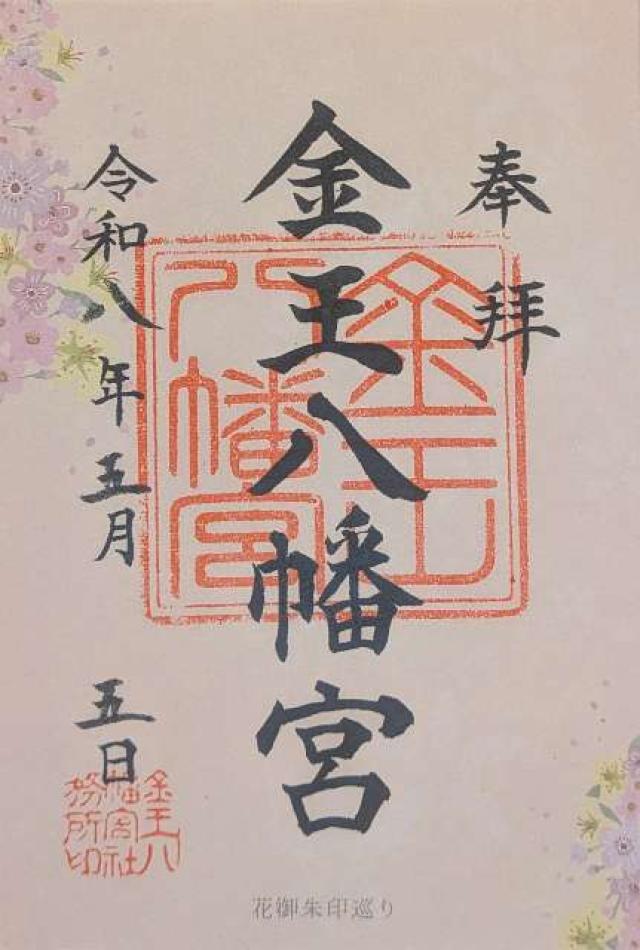 奉拝
金王八幡宮
令和八年五月五日
金王
八幡宮
金王八
幡宮社
務所印
花御朱印巡り